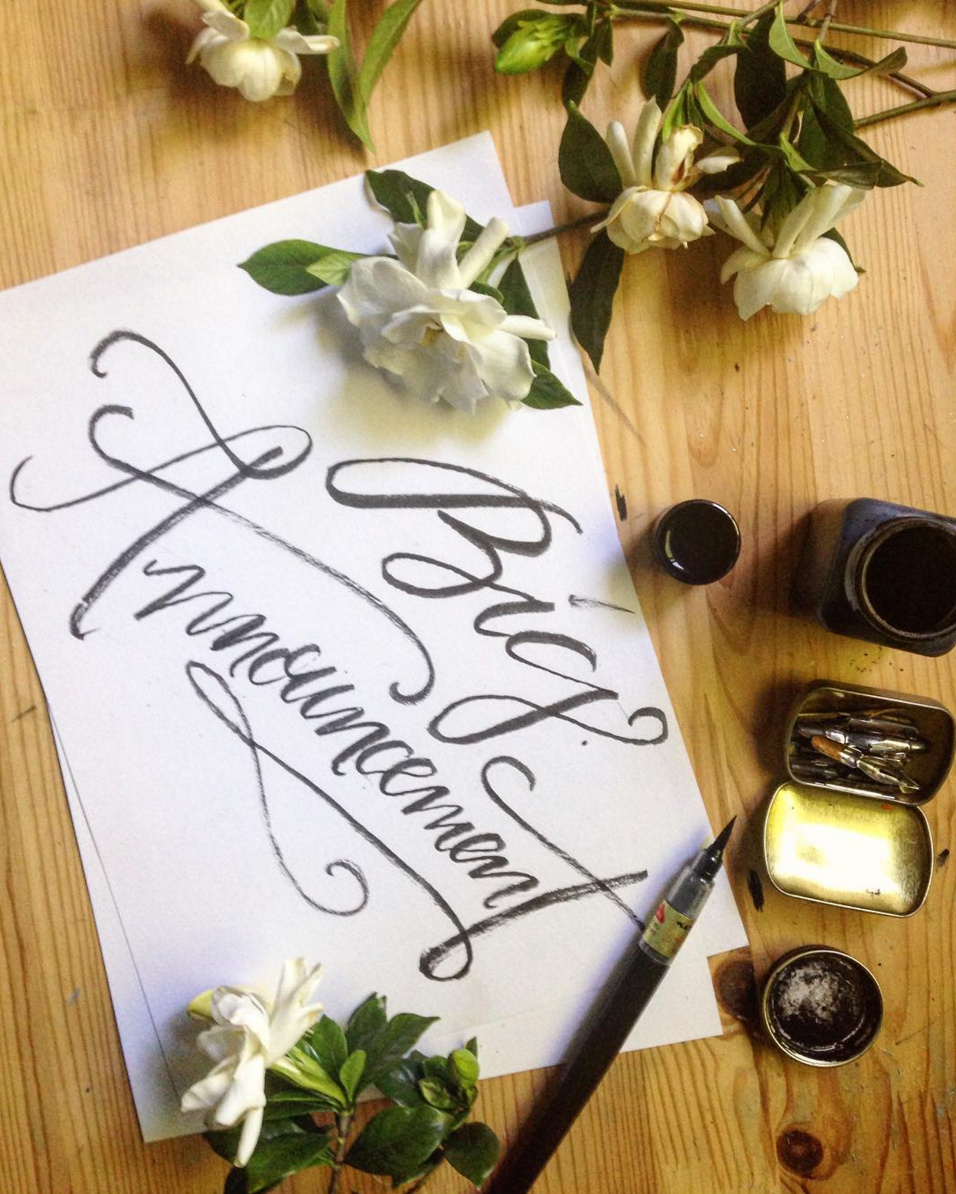 Big
Announcement